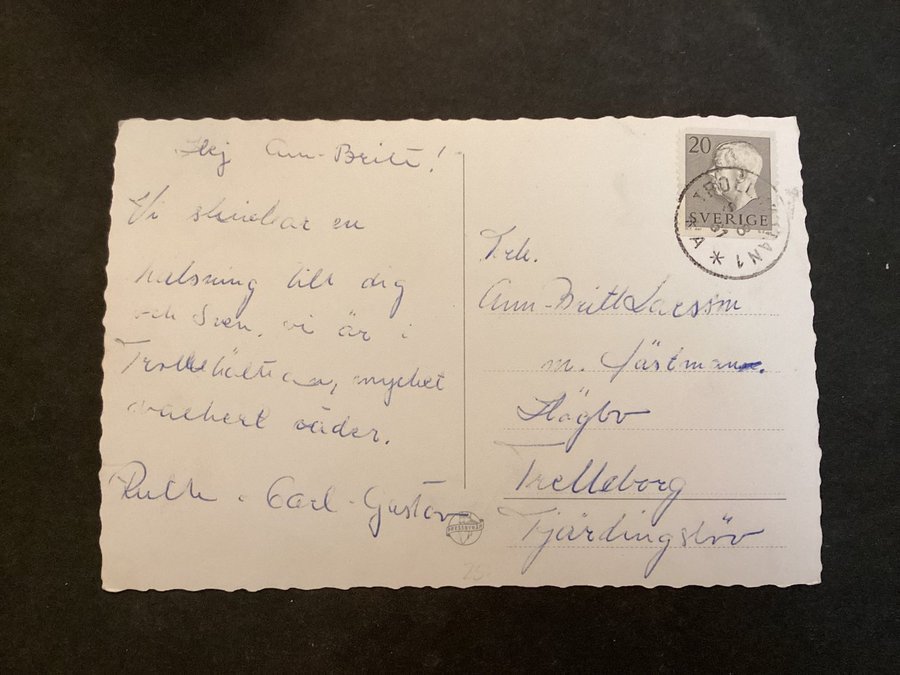 Hej Ann-Britt!
Vi skickar en
hälsning till dig
och Sven, vi är i
Trollhättan, mycket
vackert väder.
Ruth o. Carl-Gustav
20
SVERIGE
TROLLHÄTTAN 1
* A *
Frk.
Ann-Britt Larsson
m. fästman.
Högbo
Trelleborg
Fjärdingslöv
PRESSBYRÅN